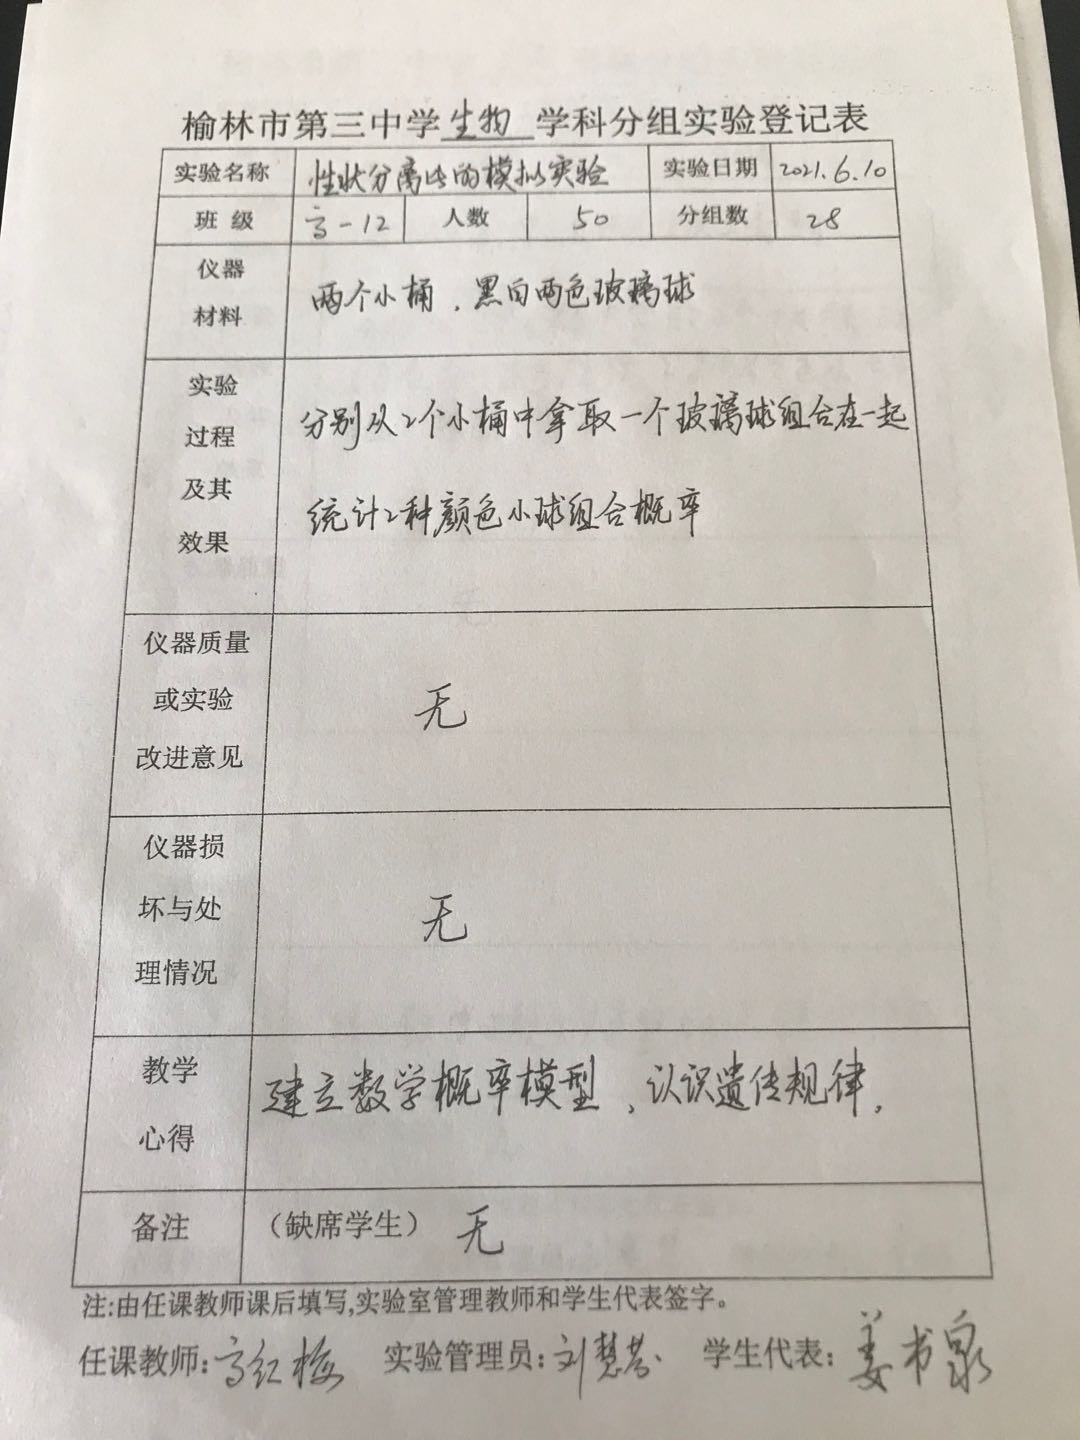 榆林市第三中学生物 学科分组实验登记表
实验名称 性状分离比的模拟实验 实验日期 2021.6.10
班 级 高-12 人数 50 分组数 28
仪器
材料
两个小桶，黑白两色玻璃球
实验
过程
及其
效果
分别从2个小桶中拿取一个玻璃球组合在一起
统计2种颜色小球组合概率
仪器质量
或实验
改进意见
无
仪器损
坏与处
理情况
无
教学
心得
建立数学概率模型，认识遗传规律，
备注 （缺席学生） 无
注:由任课教师课后填写,实验室管理教师和学生代表签字。
任课教师:高红梅 实验管理员:刘慧芬 学生代表:姜书泉